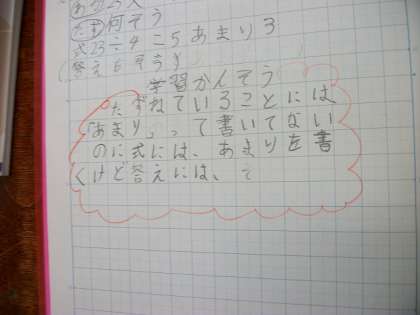 た 何そう
式23÷4=5あまり3
答え6そう
学習かんそう
たずねていることには
「あまり」って書いてない
のに式には、あまりを書
くけど答えには、